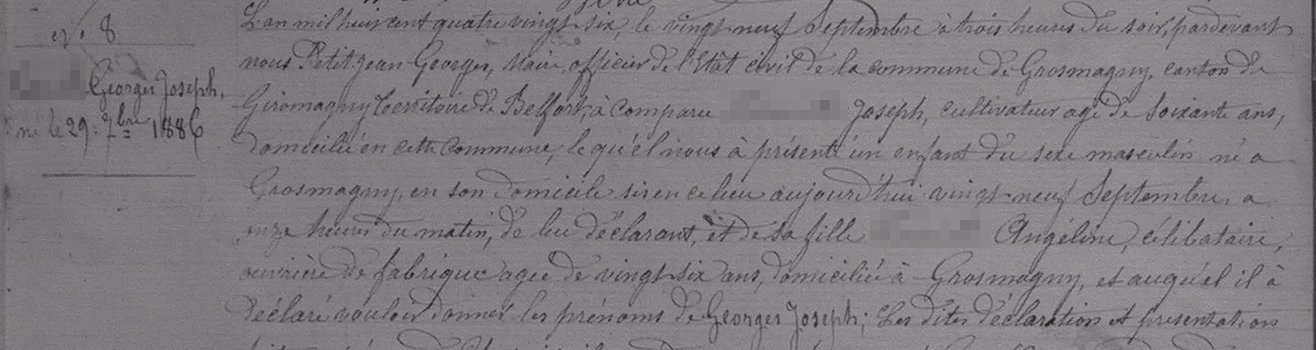 N. 8
Georges Joseph.
né le 29. 7bre 1886
L'an mil huit cent quatre vingt six, le vingt-neuf Septembre à trois heures du soir, pardevant
nous Petitjean Georges, Maire, officier de l'Etat civil de la commune de Grosmagny, canton de
Giromagny Territoire de Belfort, à comparu Joseph, cultivateur agé de soixante ans,
domicilié en cette commune, le quel nous à présenté un enfant du sexe masculin né a
Grosmagny, en son domicile sis en ce lieu aujourd'hui vingt-neuf Septembre, a
onze heures du matin, de lui déclarant, et de sa fille Angéline, célibataire,
ouvrière de fabrique agée de vingt-six ans, domiciliée à Grosmagny, et auquel il à
déclaré vouloir donner les prénoms de Georges Joseph; Les dites déclaration et présentation